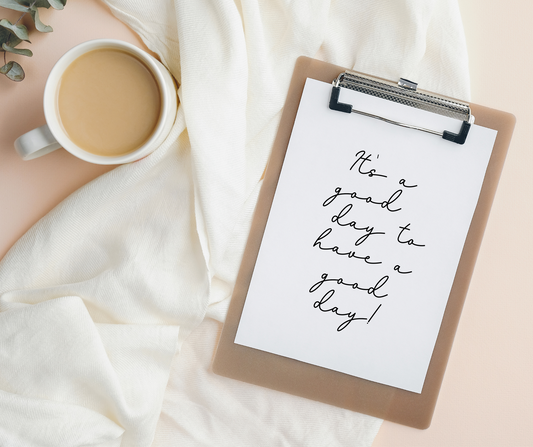 It's a
good
day to
have a
good
day!